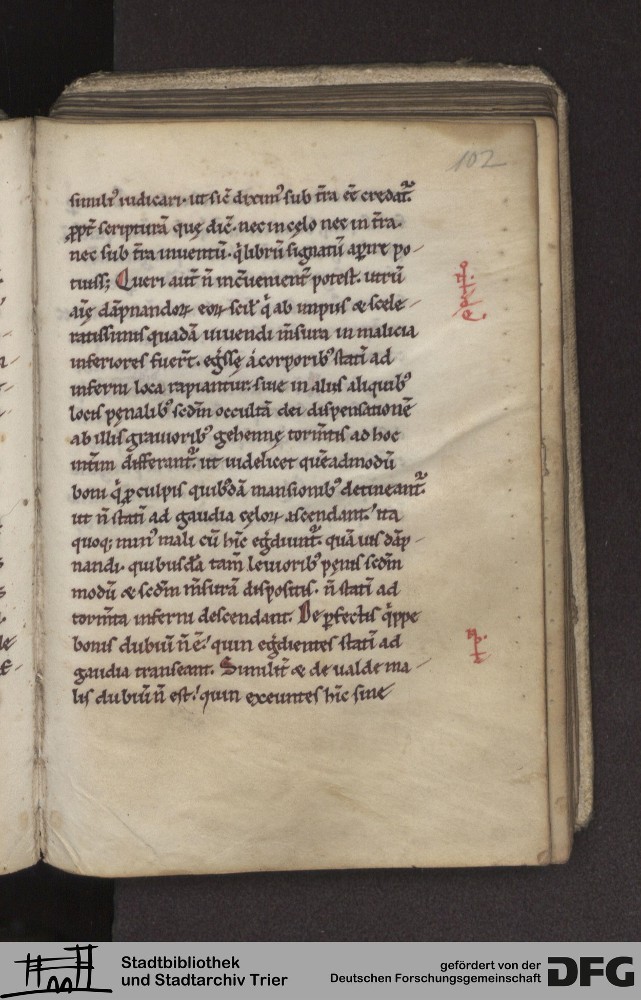 102
simili᷒ iudicari· ut sic̄ dixim᷒ sub t̄ra eē credat᷑
ꝓpt̄ scripturā quę dic̄· nec in cęlo nec in t̄ra·
nec sub t̄ra inuentū· q̇ librū signatū aꝑire po
tuiss; Queri aut̄ n̄ inc̄uenient̄ potest· utrū
aīę dāpnandoꝝ eoꝝ scil᷒ q̇ ab impiis & scele
ratissimis quadā uiuendi m̄sura in malicia
inferiores fuer̄t· eg̅ssę á corporib᷒ statī ad
inferni loca rapiantur· siue in aliis aliquib᷒
locis pęnalib᷒ scdm̄ occultā dei dispensationē
ab illis grauiorib᷒ gehennę torm̄tis ad hoc
int̄im differant᷑· ut uidelicet quēadmodū
boni q̇ ꝓ culpis quib᷒dā mansionib᷒ detineant᷑·
ut n̄ statī ad gaudia cęloꝝ ascendant· ita
quoq; min᷒ mali cū hīc eg̅diunt᷑· quā uis dāp
nandi· quibusdā tam̄ leuiorib᷒ penis scdm̄
modū & scdm̄ m̄surā dispositis· n̄ statī ad
torm̄ta inferni descendant. De ꝑfectis q̇ppe
bonis dubiū n̄ ē· quin eg̅dientes statī ad
gaudia transeant. Similit̄ & de ualde ma
lis dubiū n̄ est· quin exeuntes hīc siue
Stadtbibliothek
und Stadtarchiv Trier
gefördert von der
Deutschen Forschungsgemeinschaft
DFG